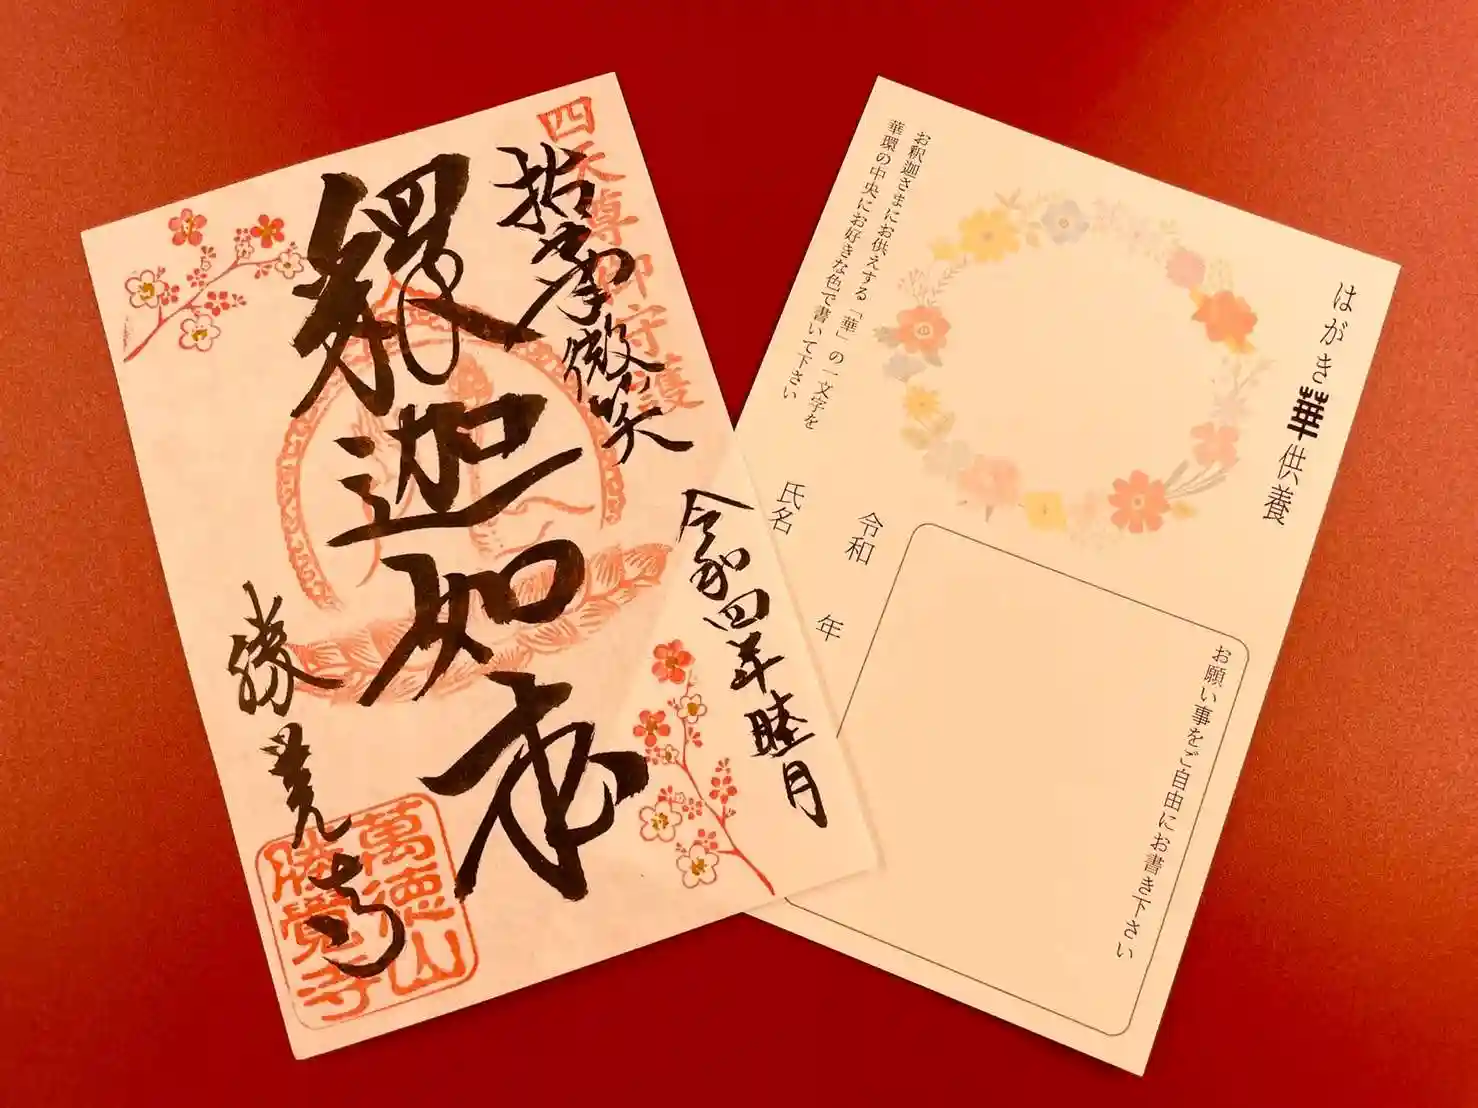 四天尊御守護
拈華微笑
釋迦如来
令和四年睦月
勝覚寺
萬徳山
勝覺寺
はがき華供養
お釈迦さまにお供えする「華」の一文字を
華環の中央にお好きな色で書いて下さい
令和　年
氏名
お願い事をご自由にお書き下さい